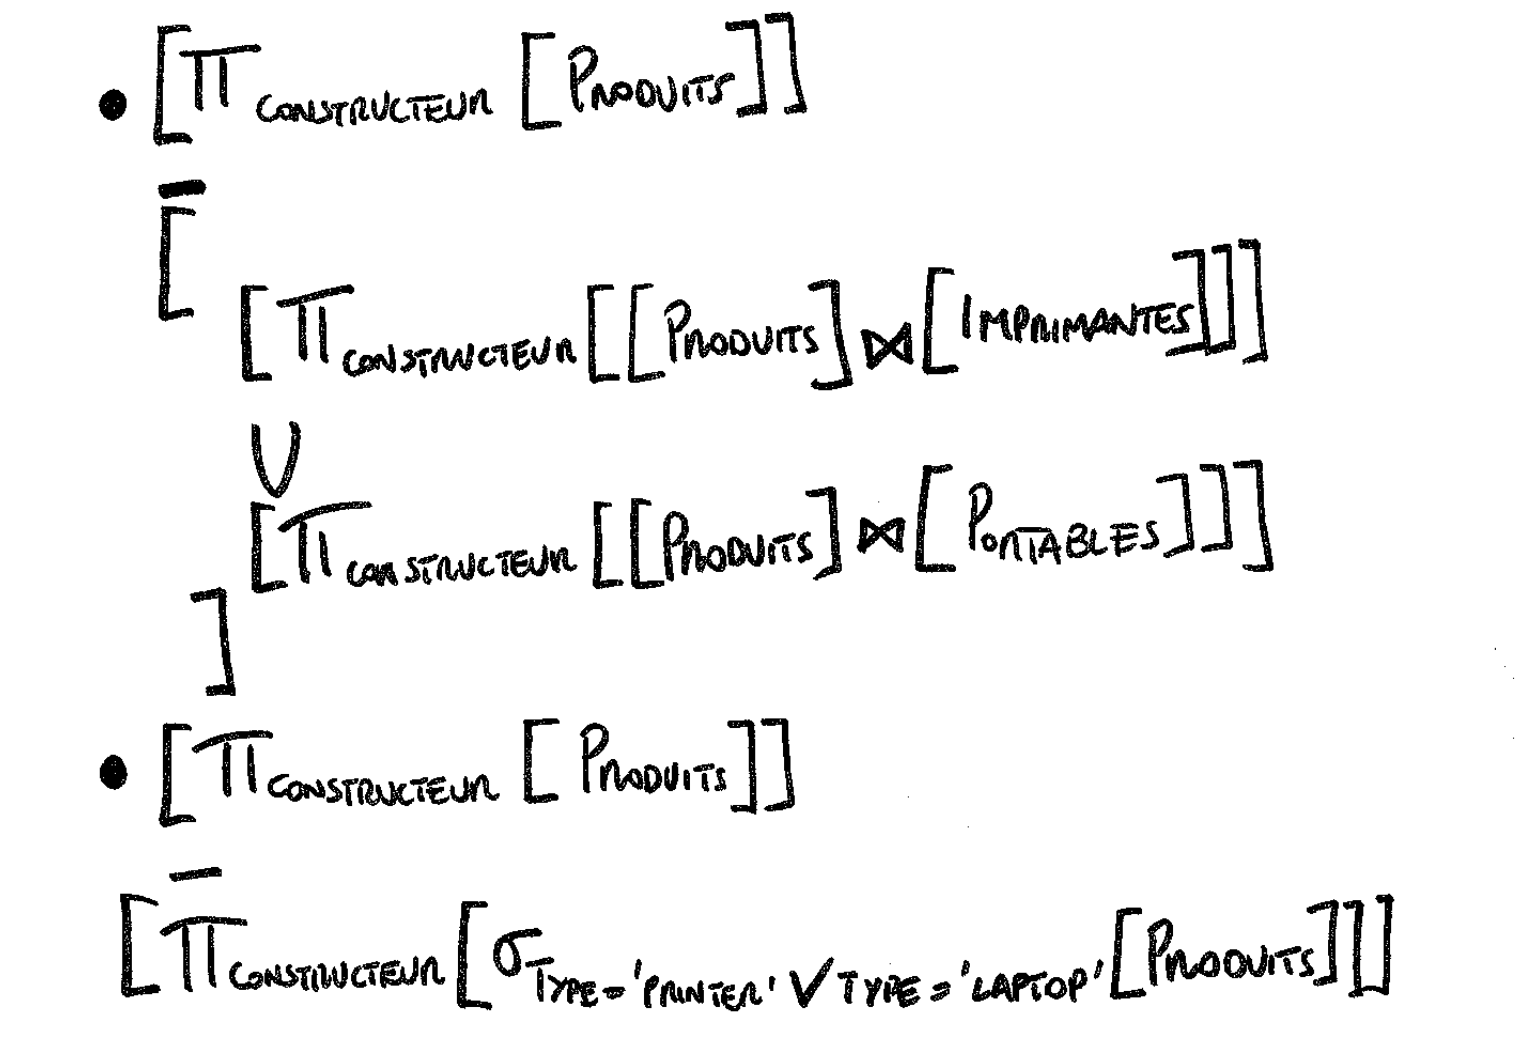 • [π CONSTRUCTEUR [PRODUITS]]
−
[
[π CONSTRUCTEUR [[PRODUITS] ⋈ [IMPRIMANTES]]]
∪
[π CONSTRUCTEUR [[PRODUITS] ⋈ [PORTABLES]]]
]
• [π CONSTRUCTEUR [PRODUITS]]
−
[π CONSTRUCTEUR [σ TYPE='PRINTER' ∨ TYPE='LAPTOP' [PRODUITS]]]